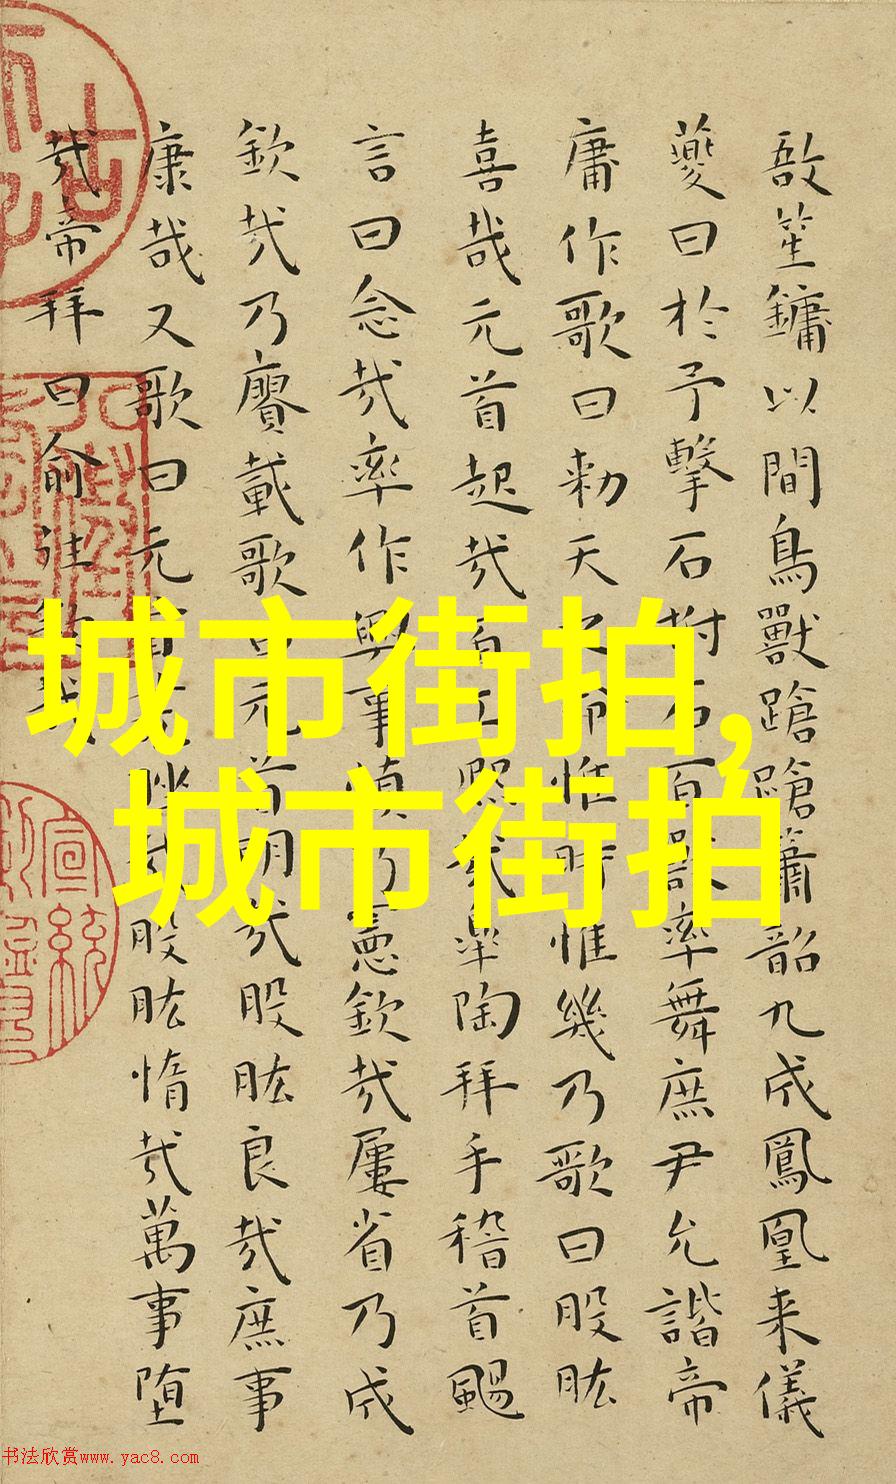 敔笙鏞以間鳥獸蹌蹌簫韶九成鳳凰来儀
夔曰於予擊石拊石百獸率舞庶尹允諧帝
庸作歌曰勑天之命惟時惟幾乃歌曰股肱
喜哉元首起哉百工熙哉皋陶拜手稽首颺
言曰念哉率作興事慎乃憲欽哉屢省乃成
欽哉乃賡載歌曰元首明哉股肱良哉庶事
康哉又歌曰元首叢脞哉股肱惰哉萬事堕
哉帝拜曰俞往欽哉
城市街拍,
城市街拍
宣統
书法欣赏www.yac8.com